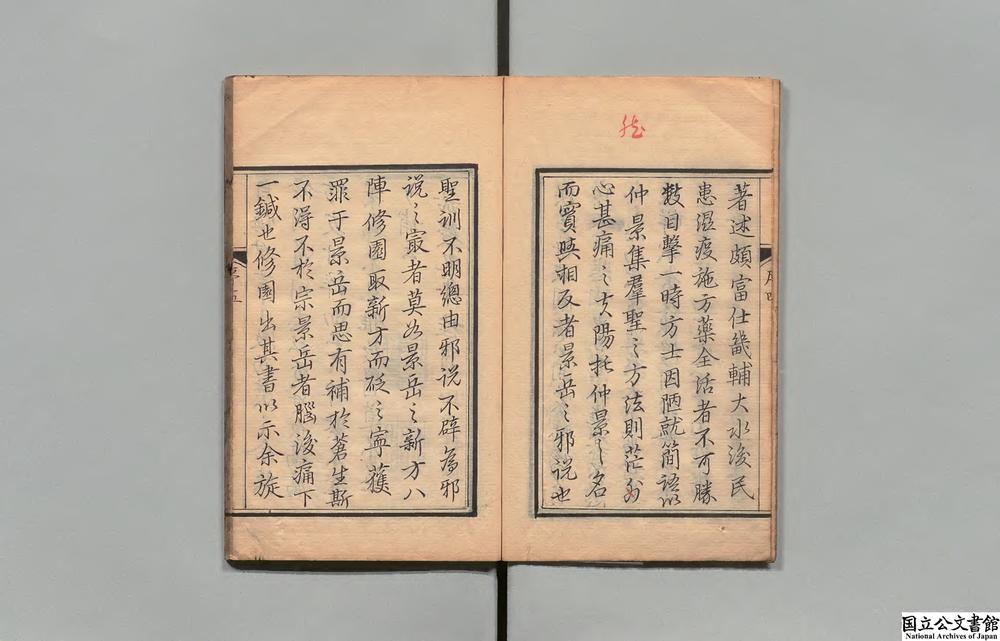 著述頗富仕畿輔大水後民
患溫疫施方藥全活者不可勝
數目擊一時方士因陋就簡語以
仲景集羣聖之方法則茫尔
心甚痛之夫陽托仲景之名
而實與相反者景岳之邪說也
聖訓不明總由邪說不辟為邪
說之最者莫如景岳之新方八
陣修園取新方而砭之寧獲
罪于景岳而思有補於蒼生斯
不得不於宗景岳者腦後痛下
一鍼也修園出其書以示余旋
序四
序五
国立公文書館
National Archives of Japan